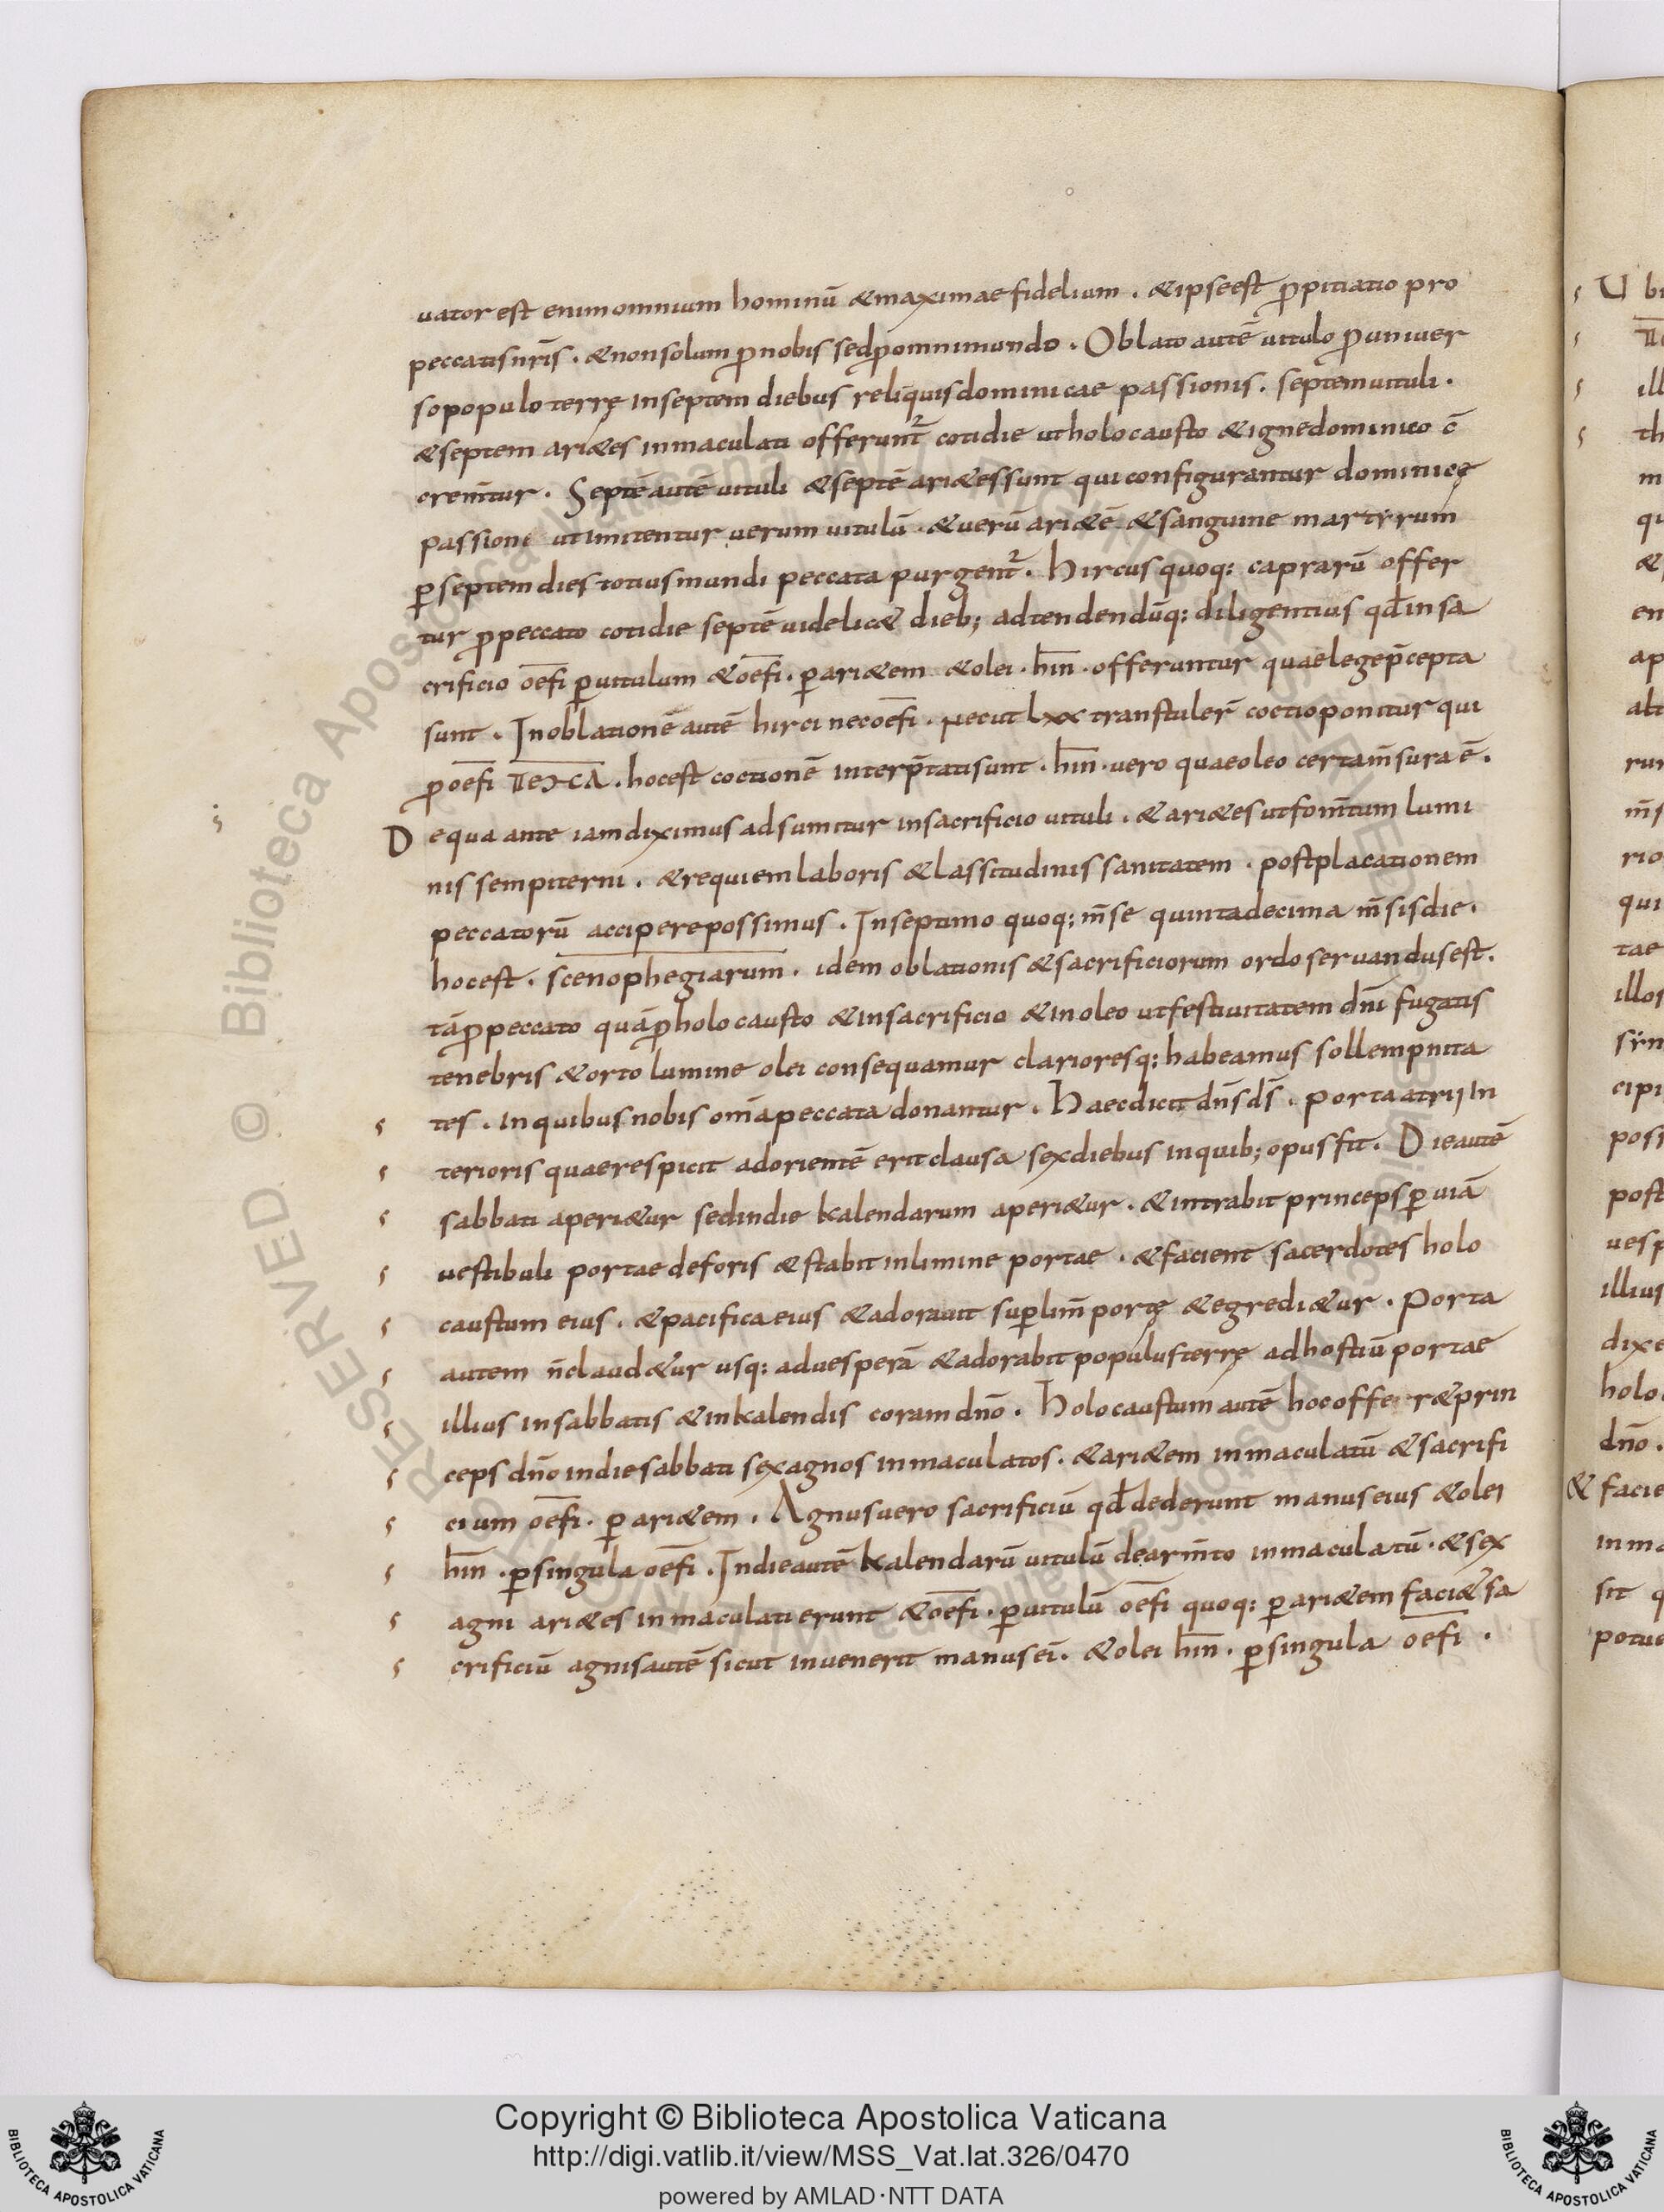 uator est enim omnium hominū & maximae fidelium . & ipse est ꝓpitiatio pro
peccatis nr̄is . & non solum ꝓ nobis sed ꝓ omni mundo . Oblato autē uitulo ꝓ uniuer
so populo terrę in septem diebus reliquis dominicae passionis . septem uituli .
& septem ari&es inmaculati offerunt᷑ cotidie ut holocausto & igne dominico c̄
crem̄tur . Septē autē uituli & septē ari&es sunt qui configurantur dominicę
passioni ut imitentur uerum uitulū . & uerū ari&ē & sanguine martyrum
ꝑ septem dies totius mundi peccata purgent᷑ . Hircus quoq: caprarū offer
tur ꝓ peccato cotidie septē uidelic& dieb; adtendendūq: diligentius qđ in sa
crificio oēfi ꝑ uitulum & oēfi . ꝑ ari&em & olei . hīn . offeruntur quae lege p̄cepta
sunt . In oblationē autē hirci nec oēfi . nec ut lxx transtuler̄ coctio ponitur qui
ꝓ oēfi πεϰϲΑ . hoc est coctionē interp̄tati sunt . hīn . uero quae oleo certa m̄sura ē .
De qua ante iam diximus adsumitur in sacrificio uituli . & ari&es ut fom̄tum lumi
nis sempiterni . & requiem laboris & lassitudinis sanitatem . post placationem
peccatorū accipere possimus . In septimo quoq: m̄se quintadecima m̄sis die .
hoc est . scenophegiarum . idem oblationis & sacrificiorum ordo seruandus est .
tā ꝓ peccato quā ꝓ holocausto & in sacrificio & in oleo ut festiuitatem dn̄i fugatis
tenebris & orto lumine olei consequamur clarioresq: habeamus sollempnita
tes . in quibus nobis om̄a peccata donantur . Haec dicit dn̄s d̄s . Porta atrij in
terioris quae respicit ad orientē erit clausa sex diebus in quib; opus fit . Die autē
sabbati aperi&ur sed in die kalendarum aperi&ur . & intrabit princeps ꝑ uiā
uestibuli portae deforis & stabit in limine portae . & facient sacerdotes holo
caustum eius . & pacifica eius & adorauit suꝑ lim̄ portę & egredi&ur . Porta
autem n̄ claud&ur usq: ad uesperā & adorabit populus terrę ad hostiū portae
illius in sabbatis & in kalendis coram dn̄o . Holocaustum autē hoc offerr& prin
ceps dn̄o in die sabbati sex agnos inmaculatos . & ari&em inmaculatū & sacrifi
cium oēfi . ꝑ ari&em . Agnus uero sacrificiū qđ dederunt manus eius & olei
hīn . ꝑ singula oēfi . In die autē kalendarū uitulū de arm̄to inmaculatū . & sex
agni ari&es inmaculati erunt & oēfi . ꝑ uitulū oēfi quoq: ꝑ ari&em faci& sa
crificiū agnis autē sicut inuenerit manus eī . & olei hīn . ꝑ singula oefi .
Copyright © Biblioteca Apostolica Vaticana
http://digi.vatlib.it/view/MSS_Vat.lat.326/0470
powered by AMLAD·NTT DATA